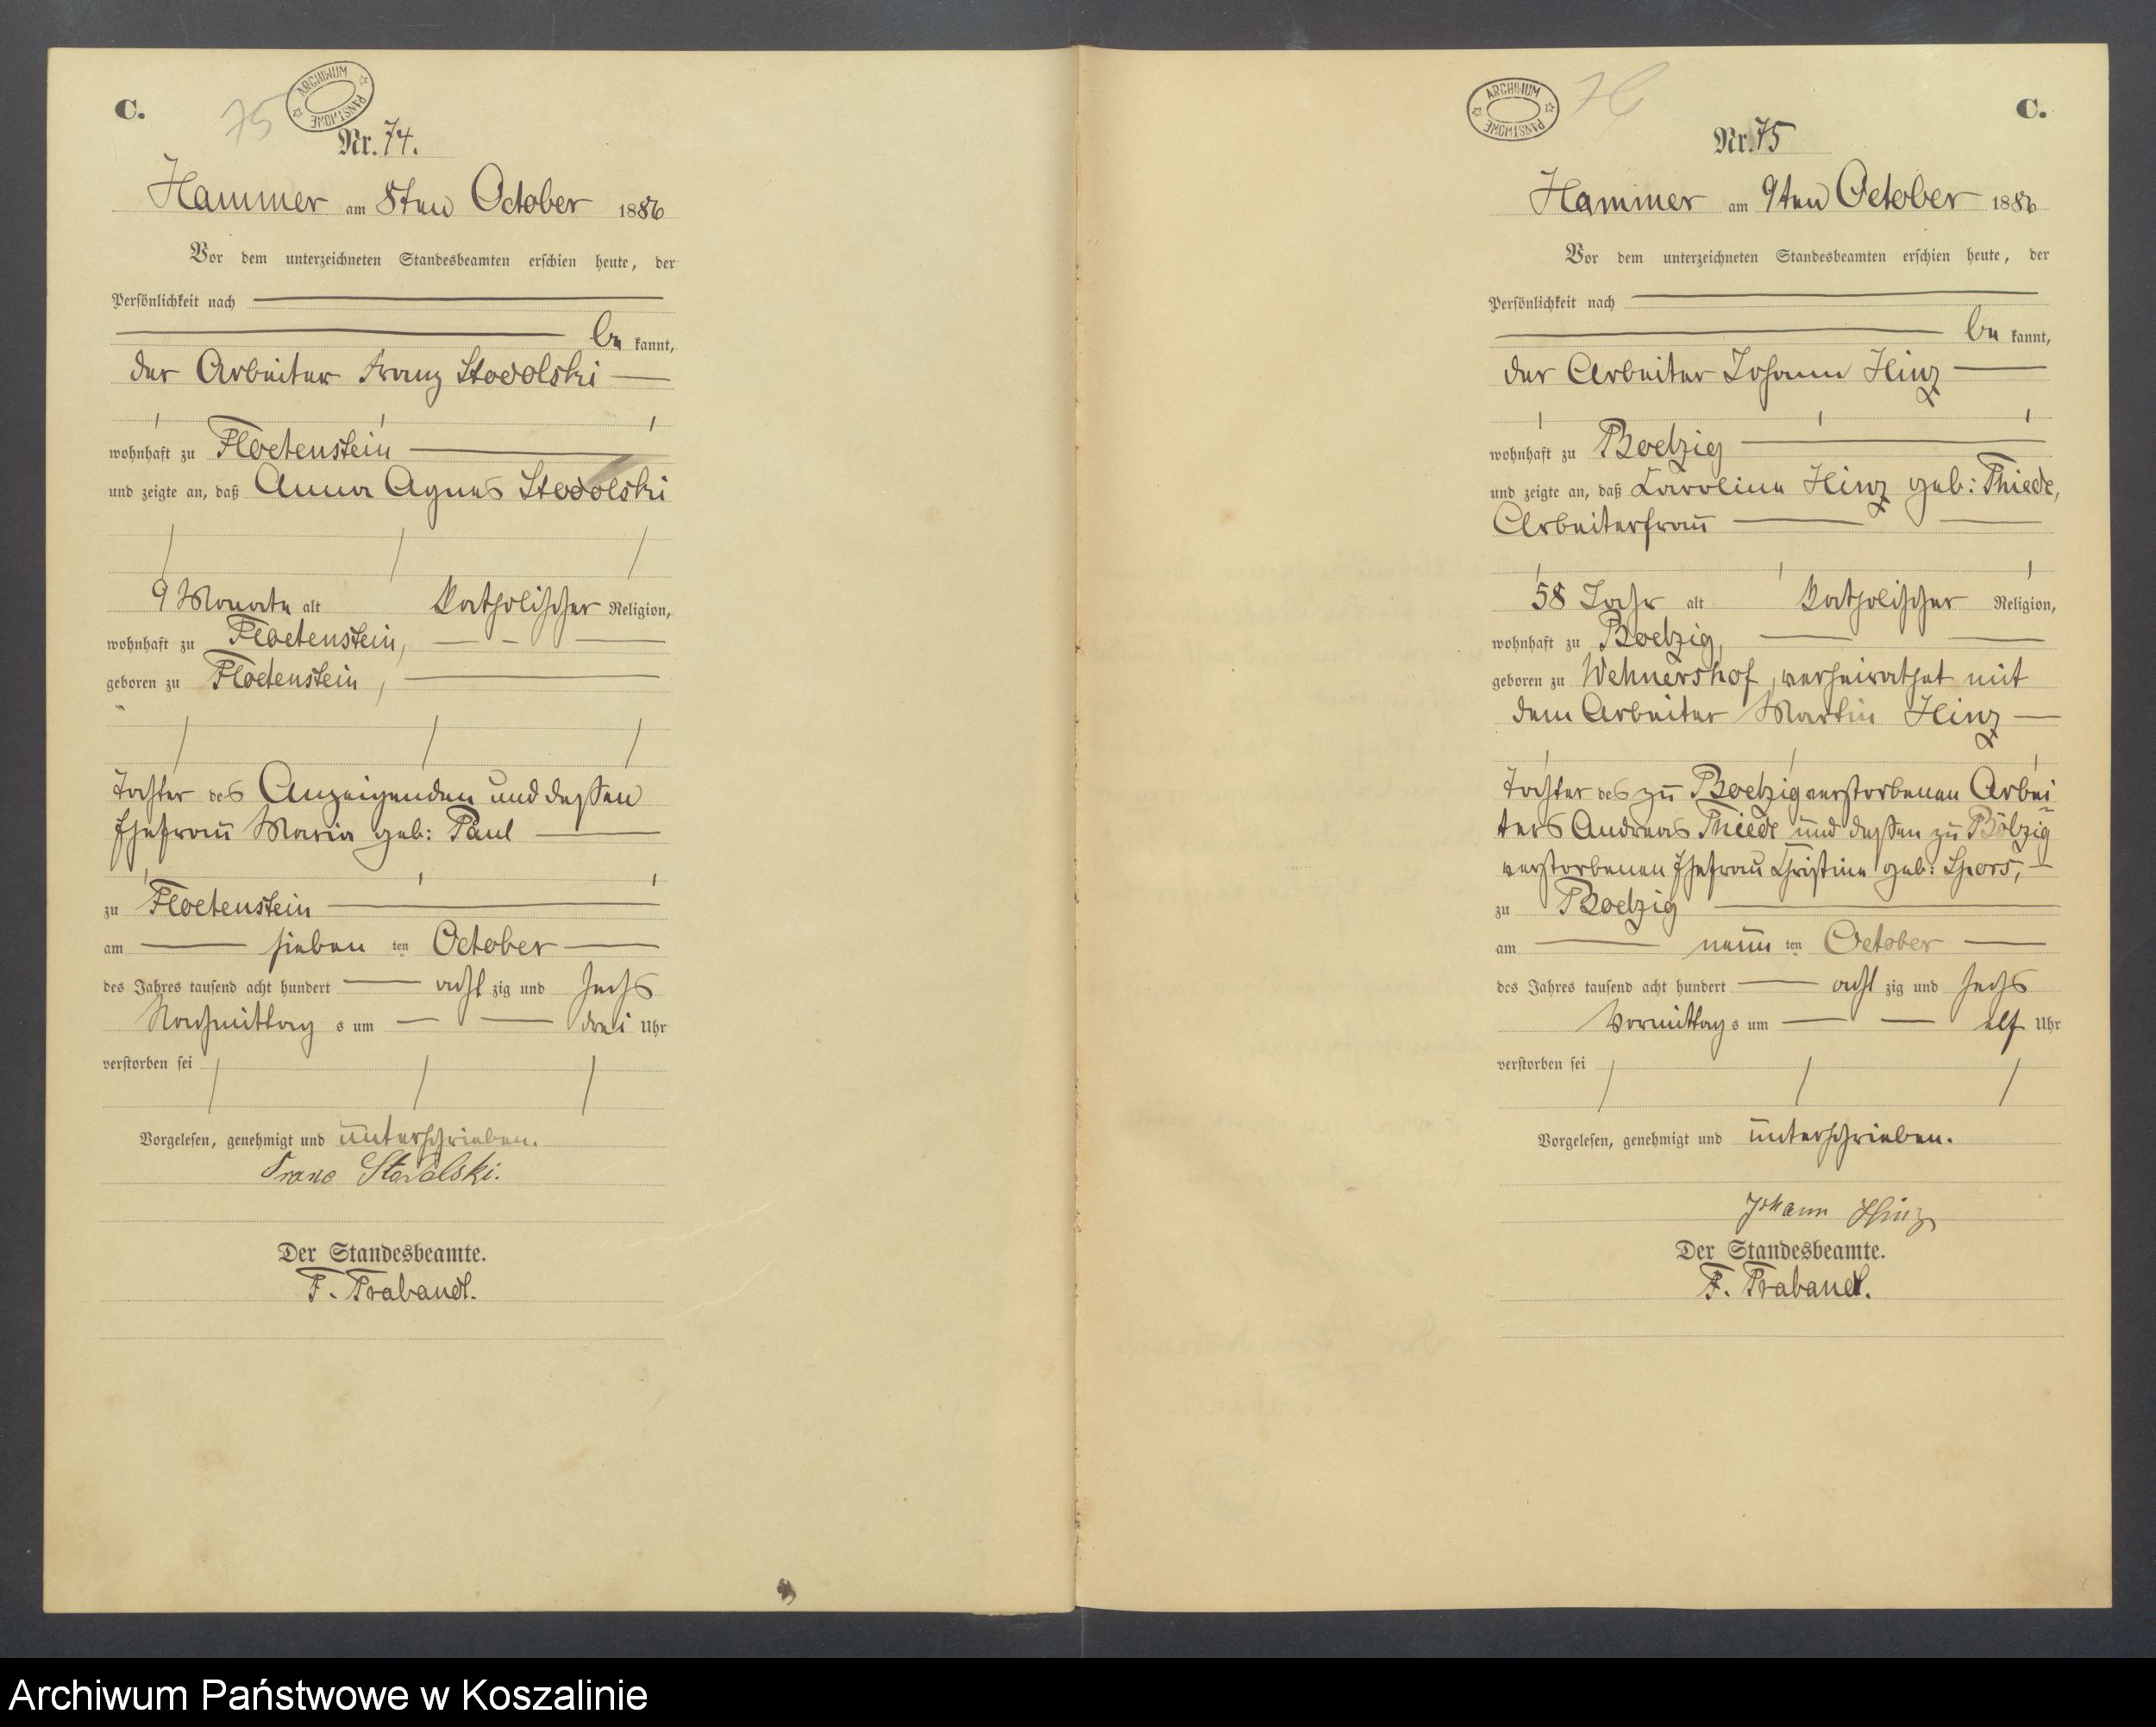 C.
75
ARCHIWUM PAŃSTWOWE
Nr. 74.
Hammer am 8ten October 1886
Vor dem unterzeichneten Standesbeamten erschien heute, der
Persönlichkeit nach
be kannt,
der Arbeiter Franz Stodolski
wohnhaft zu Floetenstein
und zeigte an, daß Anna Agnes Stodolski
9 Monate alt katholischer Religion,
wohnhaft zu Floetenstein,
geboren zu Floetenstein,
Tochter des Anzeigenden und dessen
Ehefrau Maria geb: Paul
zu Floetenstein
am sieben ten October
des Jahres tausend acht hundert acht zig und sechs
Nachmittag s um drei Uhr
verstorben sei
Vorgelesen, genehmigt und unterschrieben.
Franc Stodolski.
Der Standesbeamte.
F. Trabandt.
76
ARCHIWUM PAŃSTWOWE
C.
Nr. 75
Hammer am 9ten October 1886
Vor dem unterzeichneten Standesbeamten erschien heute, der
Persönlichkeit nach
be kannt,
der Arbeiter Johann Hinz
wohnhaft zu Boelzig
und zeigte an, daß Caroline Hinz geb: Thiede,
Arbeiterfrau
58 Jahr alt katholischer Religion,
wohnhaft zu Boelzig,
geboren zu Wehnershof, verheirathet mit
dem Arbeiter Martin Hinz
Tochter des zu Boelzig verstorbenen Arbei-
ters Andreas Thiede und dessen zu Bölzig
verstorbenen Ehefrau Christine geb: Spors,
zu Boelzig
am neun ten October
des Jahres tausend acht hundert acht zig und sechs
Vormittag s um elf Uhr
verstorben sei
Vorgelesen, genehmigt und unterschrieben.
Johann Hinz
Der Standesbeamte.
F. Trabandt.
Archiwum Państwowe w Koszalinie